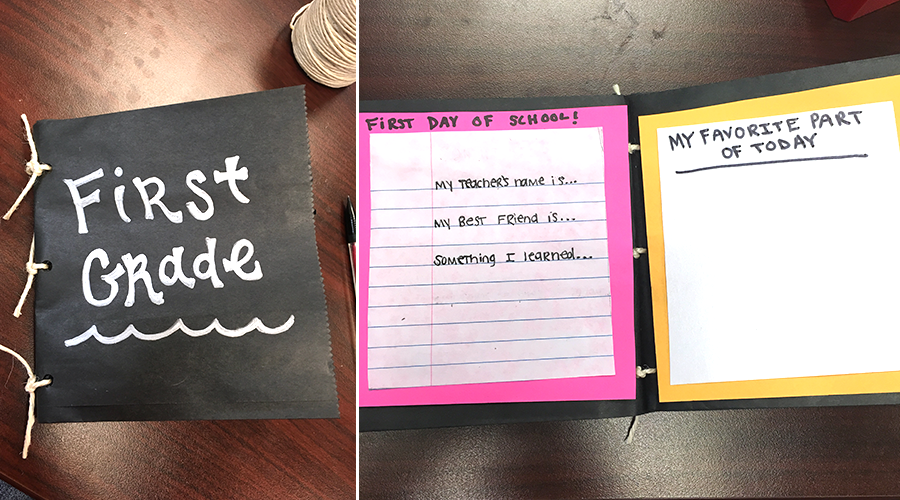 First
Grade
FIRST DAY OF SCHOOL!
MY Teacher's name is...
MY BEST FRIEND is...
SOMETHING I learned...
MY FAVORITE PART
OF TODAY